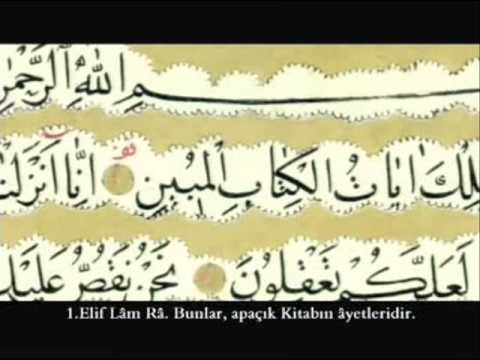 ـسم الله الرحمن
ـلك ايات الكتاب المبين انا انزلنـ
لعلكم تعقلون نحن نقص عليك
1.Elif Lâm Râ. Bunlar, apaçık Kitabın âyetleridir.